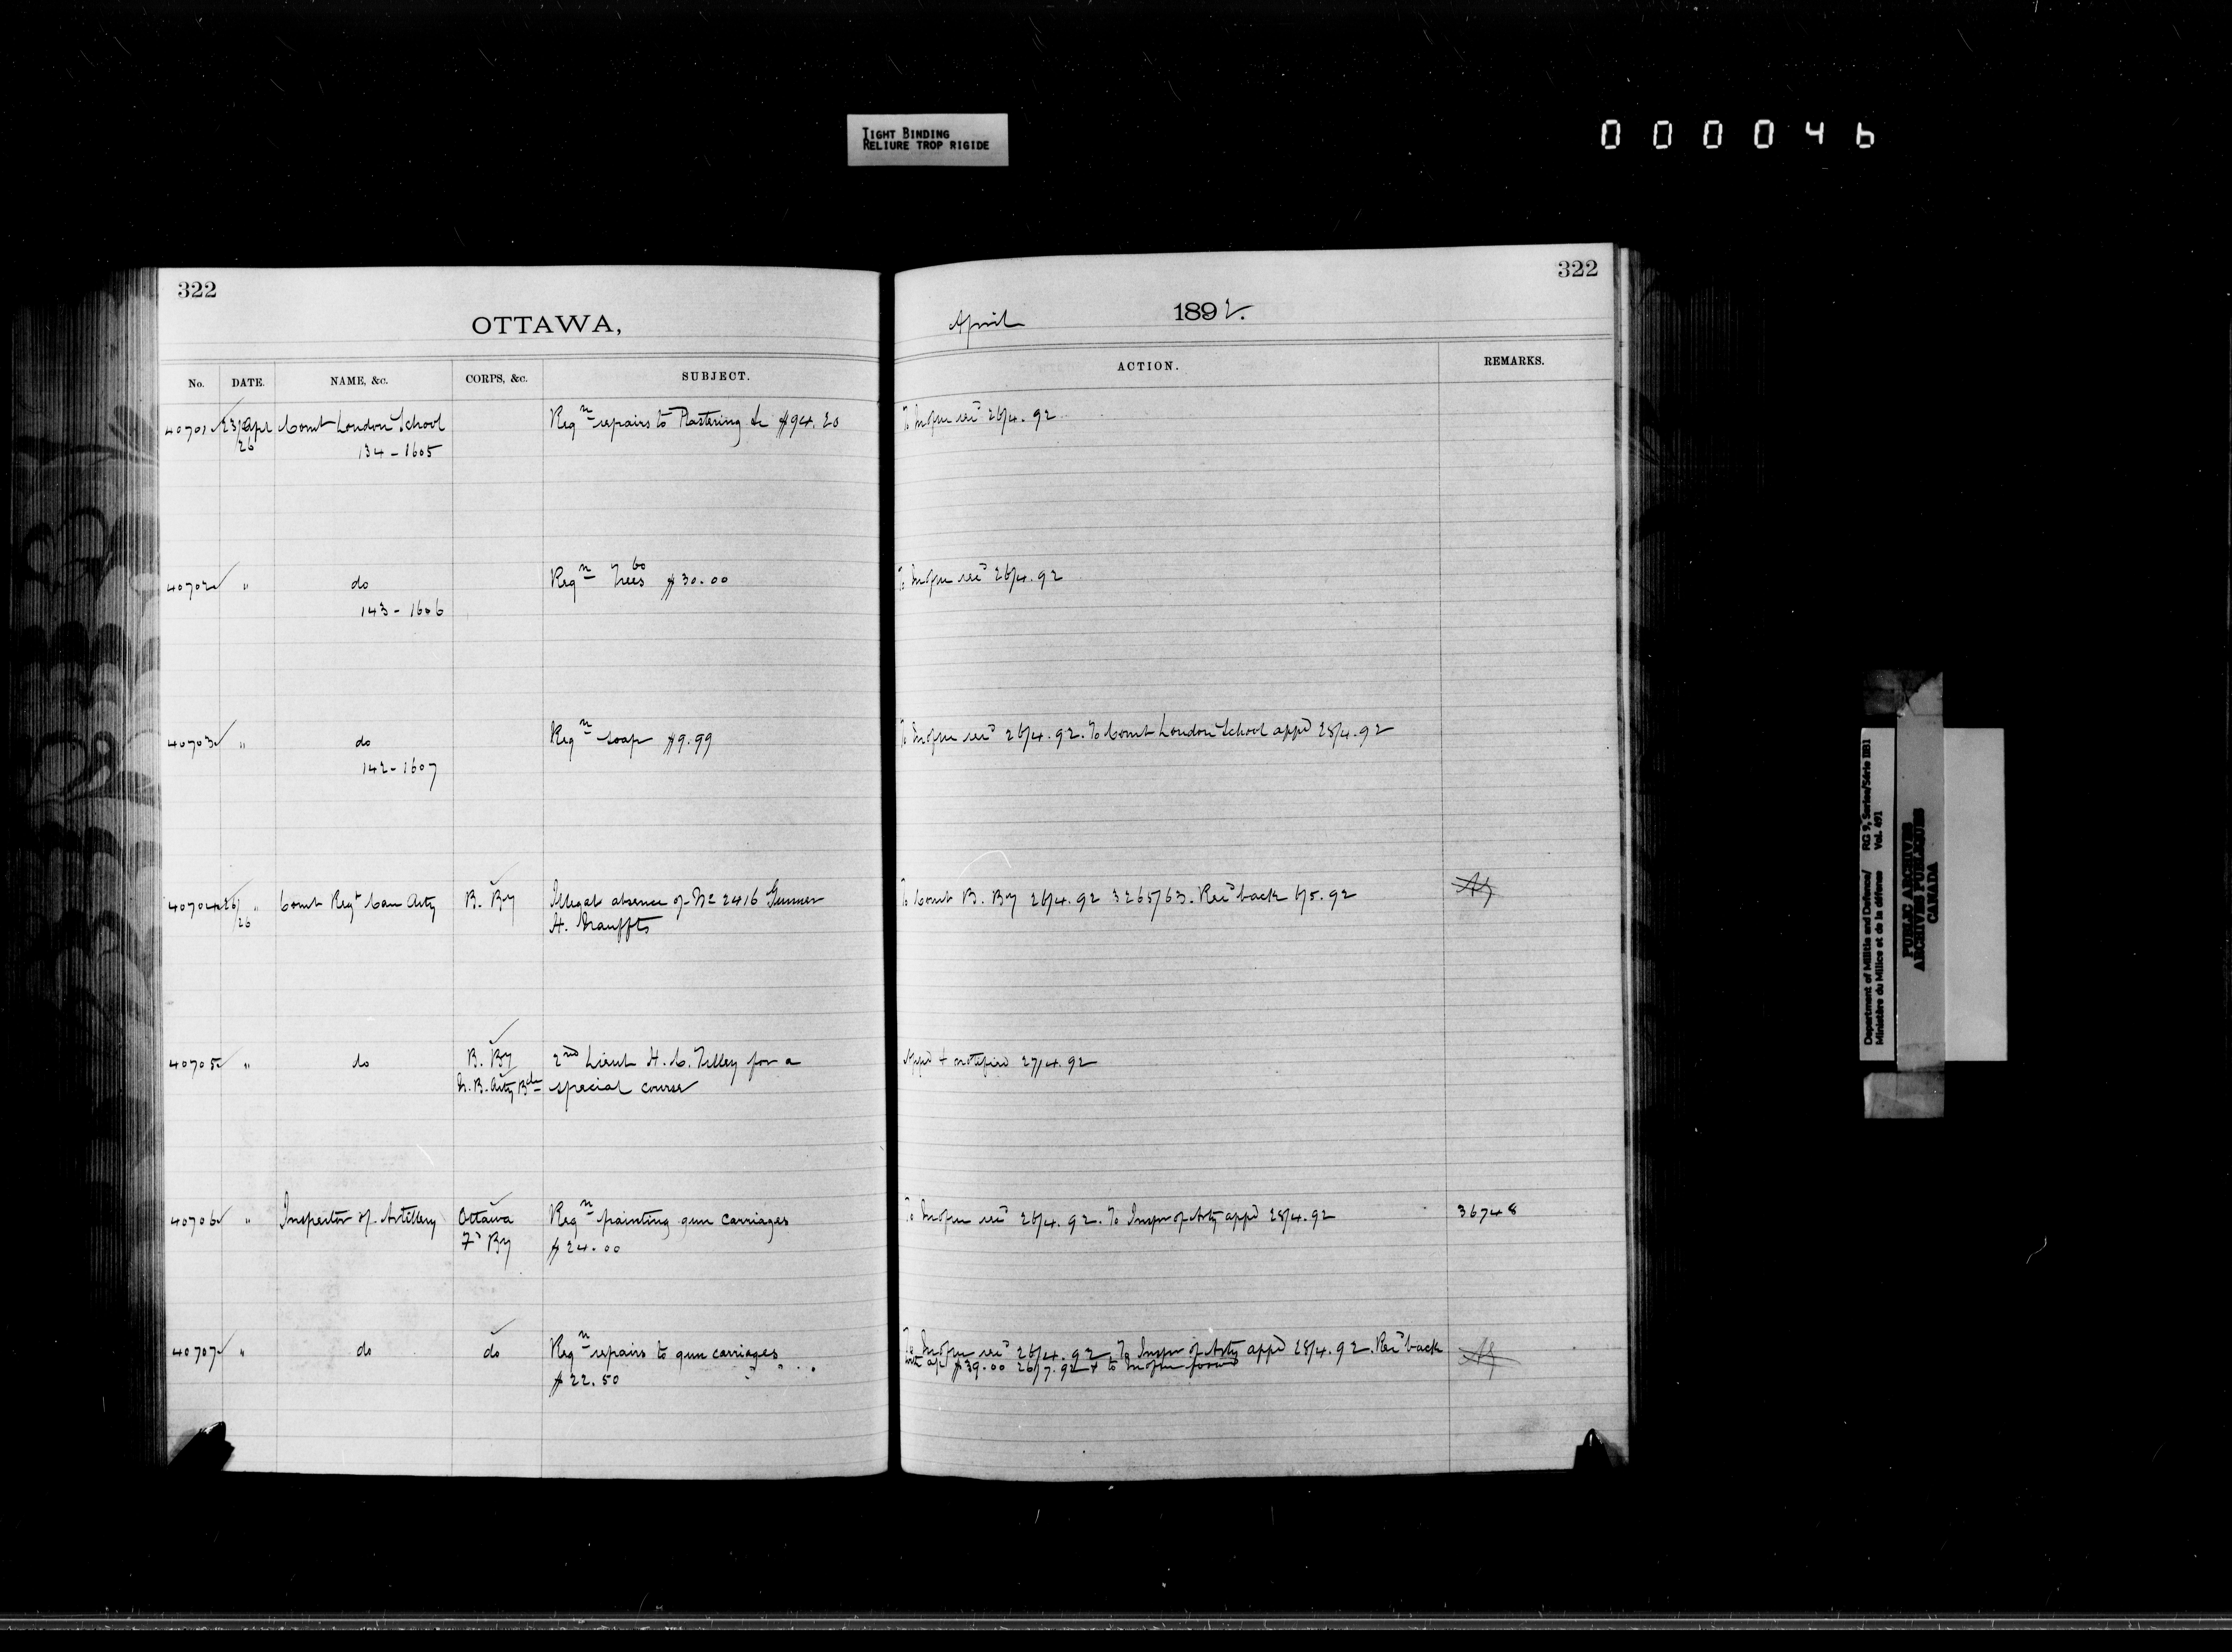 TIGHT BINDING
RELIURE TROP RIGIDE
000046
322
OTTAWA,
No. DATE. NAME, &c. CORPS, &c. SUBJECT.
40701 23/Apl Comt London School Reqn repairs to Plastering &c $94.20
/26 134-1605
40702 " do Reqn 60 Trees $30.00
143-1606
40703 " do Reqn soap $9.99
142-1607
40704 26/ " Comt Regt Can Arty B. By Illegal absence of No 2416 Gunner
/26 H.
40705 " do B. By 2nd Lieut H. C. Tilley for a
N.B. Arty Bde special course
40706 " Inspector of Artillery Ottawa Reqn painting gun carriages
Fd By $24.00
40707 " do do Reqn repairs to gun carriages
$22.50
322
April 1892.
ACTION. REMARKS.
To recd 26/4.92
To recd 26/4.92
To recd 26/4.92. To Comt London School appd 28/4.92
To Comt B. By 26/4.92 3265/63. Recd back 6/5.92
Appd & notified 27/4.92
To recd 26/4.92. To Inspr of Arty appd 28/4.92 36748
To recd 26/4.92. To Inspr of Arty appd 28/4.92. Recd back
$39.00 26/7.92 & to
Department of Militia and Defence/ RG 9, Series/Série IIB1
Ministère du Milice et de la défense Vol. 491
PUBLIC ARCHIVES
ARCHIVES PUBLIQUES
CANADA